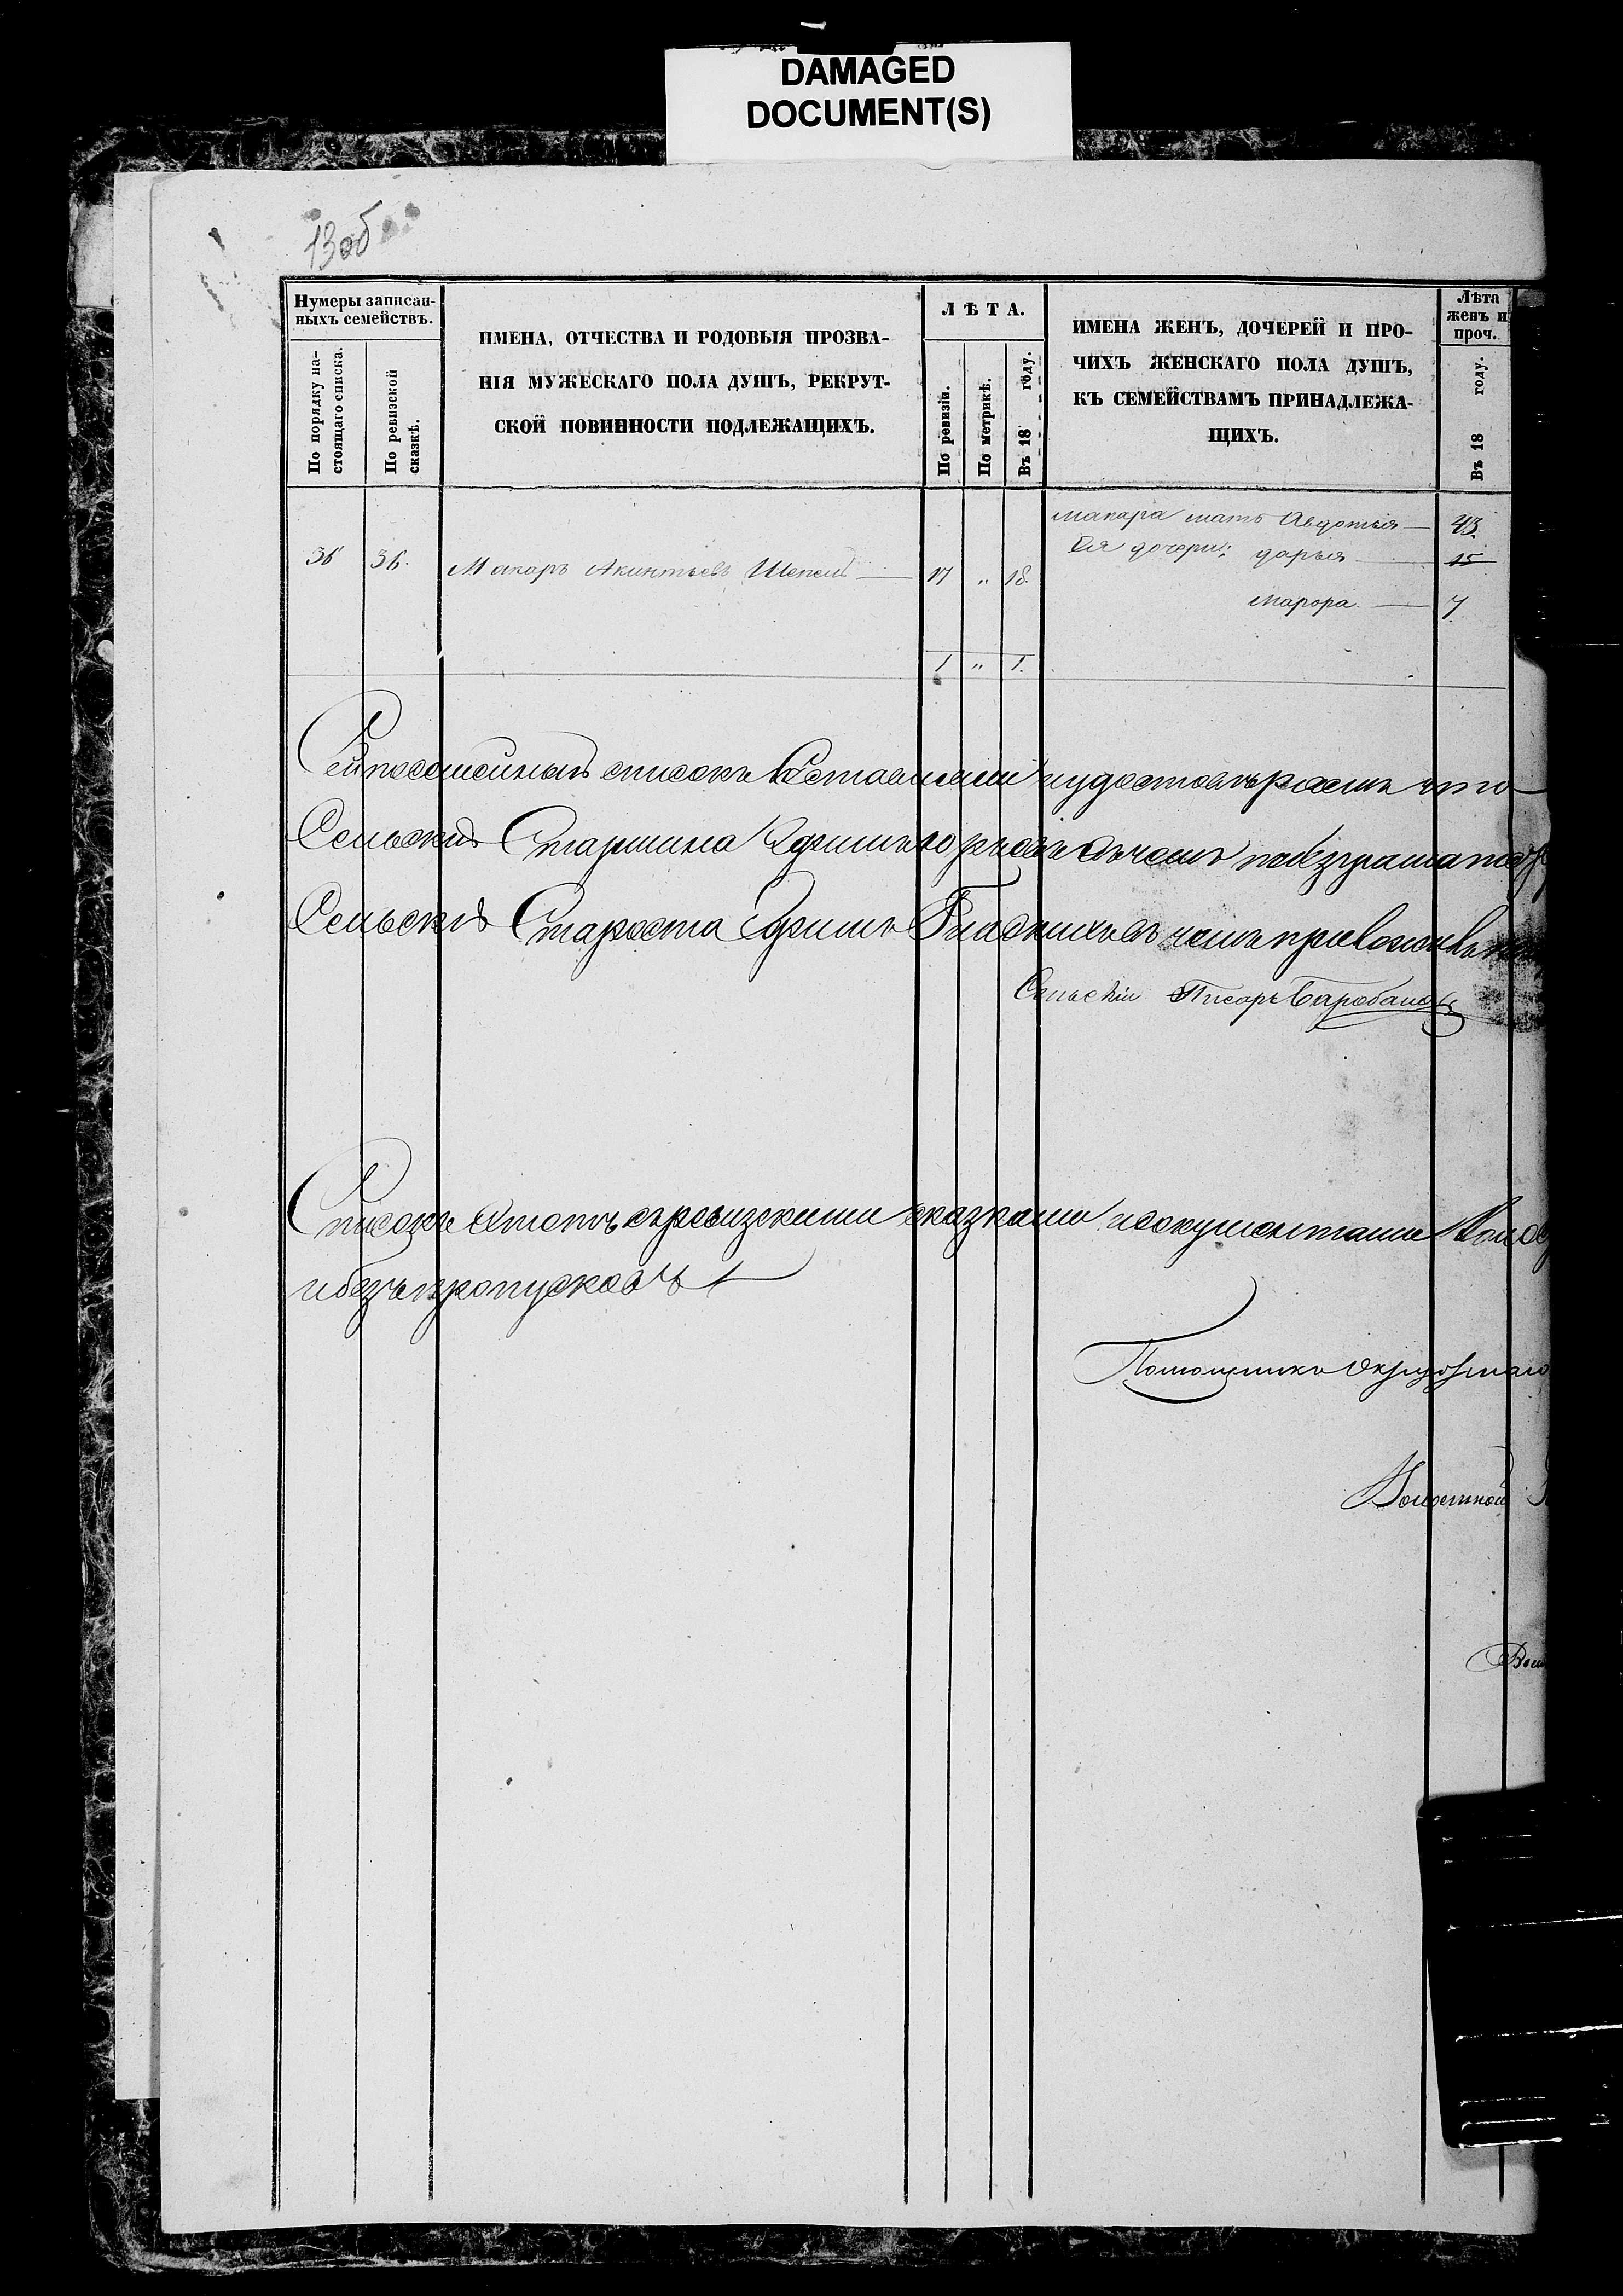 DAMAGED
DOCUMENT(S)
13об
Нумеры записан-
ныхъ семействъ.
По порядку на-
стоящаго списка.
По ревизской
сказкѣ.
ИМЕНА, ОТЧЕСТВА И РОДОВЫЯ ПРОЗВА-
НІЯ МУЖЕСКАГО ПОЛА ДУШЪ, РЕКРУТ-
СКОЙ ПОВИННОСТИ ПОДЛЕЖАЩИХЪ.
ЛѢТА.
По ревизіи.
По метрикѣ.
Въ 18 году.
ИМЕНА ЖЕНЪ, ДОЧЕРЕЙ И ПРО-
ЧИХЪ ЖЕНСКАГО ПОЛА ДУШЪ,
КЪ СЕМЕЙСТВАМЪ ПРИНАДЛЕЖА-
ЩИХЪ.
Лѣта
женъ и
проч.
Въ 18 году.
Макара мать Авдотья — 43.
36 36. Макаръ Акинтьевъ Шепель — 17 „ 18. Ея дочери: дарья — 15
— 7.
1 „ 1.
Сей посемейный списокъ составляли и удостовѣряемъ что
Сельскій Старшина въ чемъ
Сельскій Староста въ чемъ приложилъ
Сельскій Писарь Барабановъ
Списокъ этотъ съ ревизскими сказками и документами
и безъ пропусковъ
Помощникъ Окружнаго
Волостной